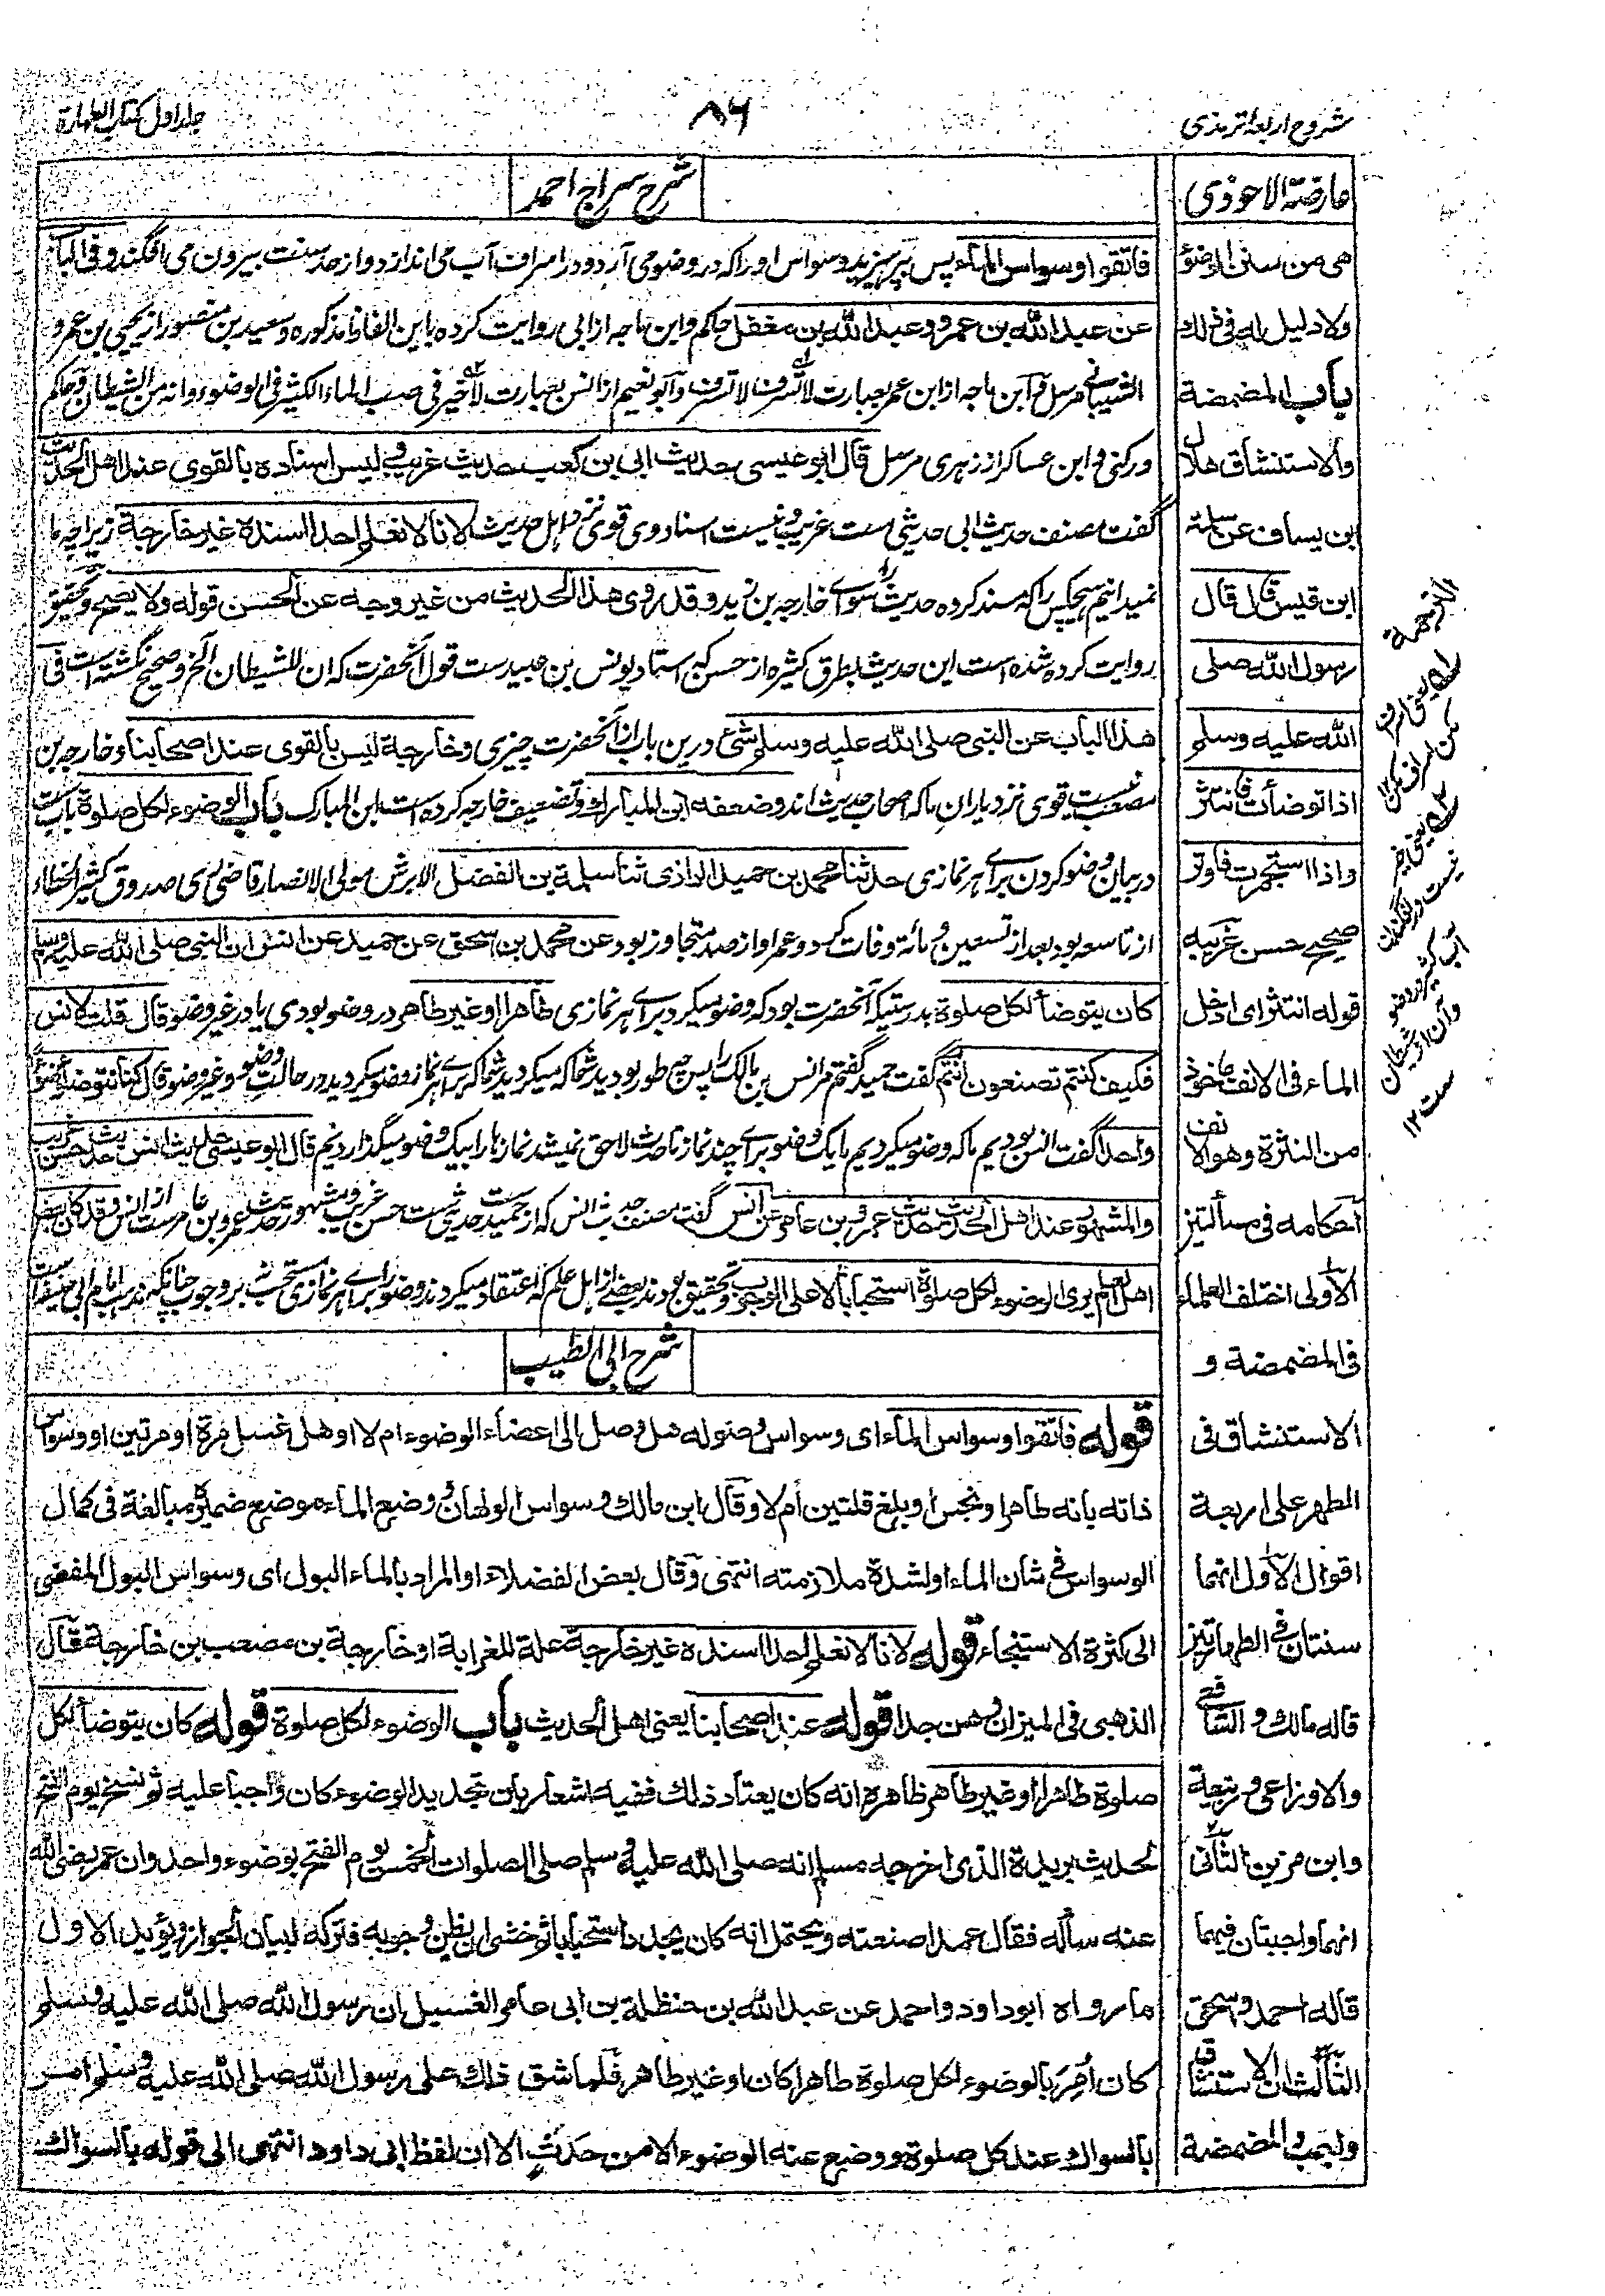 شروح اربعه ترمذی
٨٦
جلد اول کتاب الطهارة
عارضة الاحوذی
هی من سنن الوضوء
ولا دلیل له فی ذلك
باب المضمضة
والاستنشاق هلال
بن یساف عن سلمة
ابن قیس قال قال
رسول الله صلی
الله علیه وسلم
اذا توضأت فانتثر
واذا استجمرت فاوتر
صحیح حسن غریبه
قوله انتثر ای ادخل
الماء فی الانف ماخوذ
من النثرة وهو الانف
احکامه فی مسألتین
الاولی اختلف العلماء
فی المضمضة و
الاستنشاق فی
الطهر علی اربعة
اقوال الاول انهما
سنتان فی الطهارتین
قاله مالك والشافعی
والاوزاعی وربیعة
الثانی
انهما واجبتان فیهما
قاله احمد واسحق
الثالث ان الاستنشاق
المضمضة
شرح سراج احمد
فاتقوا وسواس الماء پس بپرهیزید وسواس او را که در وضو می آرد و در اسراف آب می اندازد و از حد سنت بیرون می افگند و فی الباب
عن عبد الله بن عمرو و عبد الله بن مغفل حاکم و ابن ماجه از ابی روایت کرده باین الفاظ مذکوره و سعید بن منصور از یحیی بن عمرو
الشیبانی مرسل و ابن ماجه از ابن عمر بعبارت لا تسرف لا تسرف و ابو نعیم از انس بعبارت لا خیر فی صب الماء الکثیر فی الوضوء وانه من الشیطان و حاکم
و ابن عساکر از زهری مرسل قال ابو عیسی حدیث ابی بن کعب حدیث غریب ولیس اسناده بالقوی عند اهل الحدیث
گفت مصنف حدیث ابی حدیثی است غریب و نیست اسناد وی قوی نزد اهل حدیث لانا لا نعلم احدا اسنده غیر خارجة زیرا چه ما
نمیدانیم هیچکس را که مسند کرده حدیث را سوای خارجه بن یزید وقد روی هذا الحدیث من غیر وجه عن الحسن قوله ولا یصح و تحقیق
روایت کرده شده است این حدیث بطرق کثیره از حسن که استاد یونس بن عبید ست قول آنحضرت که ان للشیطان الخ و صحیح نگشته است فی
هذا الباب عن النبی صلی الله علیه وسلم شئ درین باب از آنحضرت چیزی وخارجة لیس بالقوی عند اصحابنا و خارجه بن
مصعب نیست قوی نزد یاران ما که اصحاب حدیث اند وضعفه ابن المبارك و تضعیف خارجه کرده است ابن المبارک باب الوضوء لکل صلوة باب ست
در بیان وضو کردن برای هر نمازی حدثنا محمد بن حمید الرازی ثنا سلمة بن الفضل الابرش مولی الانصار قاضی ری صدوق کثیر الخطاء
از تاسعه بود بعد از تسعین و مائة وفات کرد و عمر او از صد متجاوز بود عن محمد بن اسحق عن حمید عن انس ان النبی صلی الله علیه وسلم
کان یتوضأ لکل صلوة بدرستیکه آنحضرت بود که وضو میکرد برای هر نمازی طاهرا او غیر طاهر در وضو بودی یا در غیر وضو قال قلت لانس
فکیف کنتم تصنعون انتم گفت حمید گفتم مر انس بن مالک را پس چه طور بودید شما که میکردید شما که برای هر نماز وضو میکردید در حالت وضو و غیر وضو قال کنا نتوضأ وضوءا
واحدا گفت انس بودیم ما که وضو میکردیم یک وضو برای چند نماز تا حدث لاحق نمیشد نمازها را بیک وضو میگذاردیم قال ابو عیسی حدیث انس حدیث حسن غریب
والمشهور عند اهل الحدیث حدیث عمرو بن عامر عن انس گفت مصنف حدیث انس که از حمید ست حدیثی ست حسن غریب و مشهور حدیث عمرو بن عامر ست از انس وقد کان بعض
اهل العلم یری الوضوء لکل صلوة استحبابا لا علی الوجوب و تحقیق بودند بعضی از اهل علم که اعتقاد میکردند وضو را برای هر نمازی مستحب نه بر وجوب چنانکه مذهب امام ابی حنیفه است
شرح ابی الطیب
قوله فاتقوا وسواس الماء ای وسواس وصوله هل وصل الی اعضاء الوضوء ام لا او هل غسل مرة او مرتین او وسواس
ذاته بانه طاهر او نجس او بلغ قلتین ام لا وقال ابن مالك وسواس الولهان وضع الماء موضع ضمیره مبالغة فی کمال
الوسواس فی شان الماء او لشدة ملازمته انتهی وقال بعض الفضلاء او المراد بالماء البول ای وسواس البول المفضی
الی کثرة الاستنجاء قوله لانا لا نعلم احدا اسنده غیر خارجة علة للغرابة او خارجة بن مصعب بن خارجة فقال
الذهبی فی المیزان وهن جدا قوله عند اصحابنا یعنی اهل الحدیث باب الوضوء لکل صلوة قوله کان یتوضأ لکل
صلوة طاهرا او غیر طاهر ظاهره انه کان یعتاد ذلك ففیه اشعار بان تجدید الوضوء کان واجبا علیه ثم نسخ یوم الفتح
لحدیث بریدة الذی اخرجه مسلم انه صلی الله علیه وسلم صلی الصلوات الخمس یوم الفتح بوضوء واحد وان عمر رضی الله
عنه سأله فقال عمدا صنعته ویحتمل انه کان یجدد استحبابا ثم خشی ان یظن وجوبه فترکه لبیان الجواز ویؤید الاول
ما رواه ابو داود واحمد عن عبد الله بن حنظلة بن ابی عامر الغسیل ان رسول الله صلی الله علیه وسلم
کان اُمِرَ بالوضوء لکل صلوة طاهرا کان او غیر طاهر فلما شق ذلك علی رسول الله صلی الله علیه وسلم امر
بالسواك عند کل صلوة ووضع عنه الوضوء الا من حدثٍ الا ان لفظ ابی داود انتهی الی قوله بالسواك